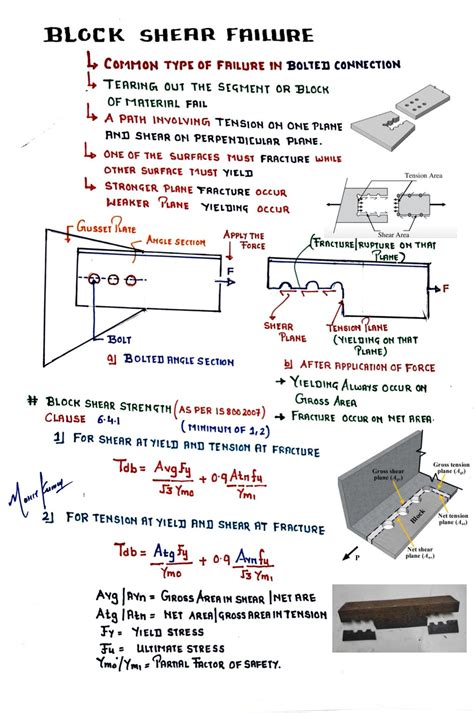 BLOCK SHEAR FAILURE
↳ COMMON TYPE OF FAILURE IN BOLTED CONNECTION
↳ TEARING OUT THE SEGMENT OR BLOCK
OF MATERIAL FAIL
↳ A PATH INVOLVING TENSION ON ONE PLANE
AND SHEAR ON PERPENDICULAR PLANE.
↳ ONE OF THE SURFACES MUST FRACTURE WHILE
OTHER SURFACE MUST YIELD
↳ STRONGER PLANE FRACTURE OCCUR
WEAKER PLANE YIELDING OCCUR
Tension Area
Shear Area
GUSSET PLATE
ANGLE SECTION
APPLY THE
FORCE
F
BOLT
a) BOLTED ANGLE SECTION
(FRACTURE/RUPTURE ON THAT
PLANE)
F
SHEAR
PLANE
TENSION PLANE
(YIELDING ON THAT
PLANE)
b) AFTER APPLICATION OF FORCE
→ YIELDING ALWAYS OCCUR ON
GROSS AREA
→ FRACTURE OCCUR ON NET AREA.
# BLOCK SHEAR STRENGTH (AS PER IS 800 2007)
CLAUSE 6.4.1 (MINIMUM OF 1,2)
1) FOR SHEAR AT YIELD AND TENSION AT FRACTURE
Tdb = Avg fy / √3 γmo + 0.9 Atn fu / γm1
2) FOR TENSION AT YIELD AND SHEAR AT FRACTURE
Tdb = Atg fy / γmo + 0.9 Avn fu / √3 γm1
Gross shear
plane (Agv)
Gross tension
plane (Agt)
Block
Net tension
plane (Ant)
Net shear
plane (Anv)
P
Avg/Avn = GROSS AREA IN SHEAR/NET ARE
Atg/Atn = NET AREA/GROSS AREA IN TENSION
Fy = YIELD STRESS
Fu = ULTIMATE STRESS
γmo/γm1 = PARTIAL FACTOR OF SAFETY.